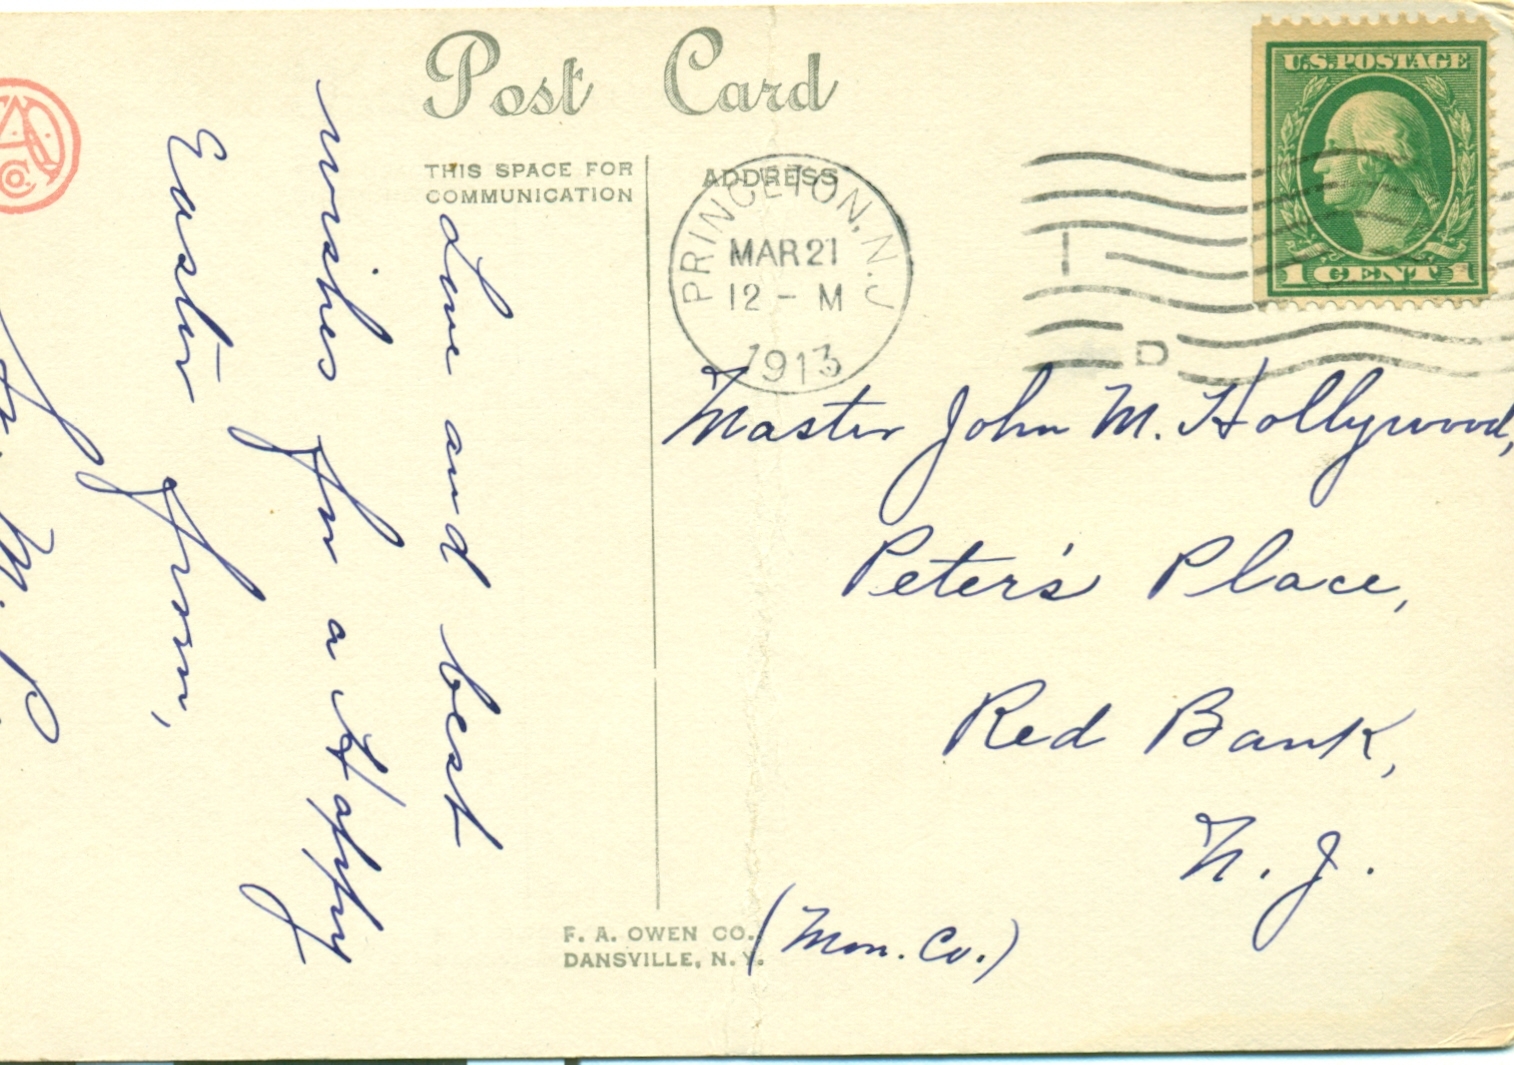 Post Card
THIS SPACE FOR
COMMUNICATION
ADDRESS
PRINCETON, N.J
MAR 21
12 - M
1913
U.S. POSTAGE
1 CENT 1
I
D
Love and best
wishes for a Happy
Easter from,
M. P.
Master John M. Hollywood,
Peter's Place,
Red Bank,
N. J.
(Mon. Co.)
F. A. OWEN CO.,
DANSVILLE, N. Y.
CO.